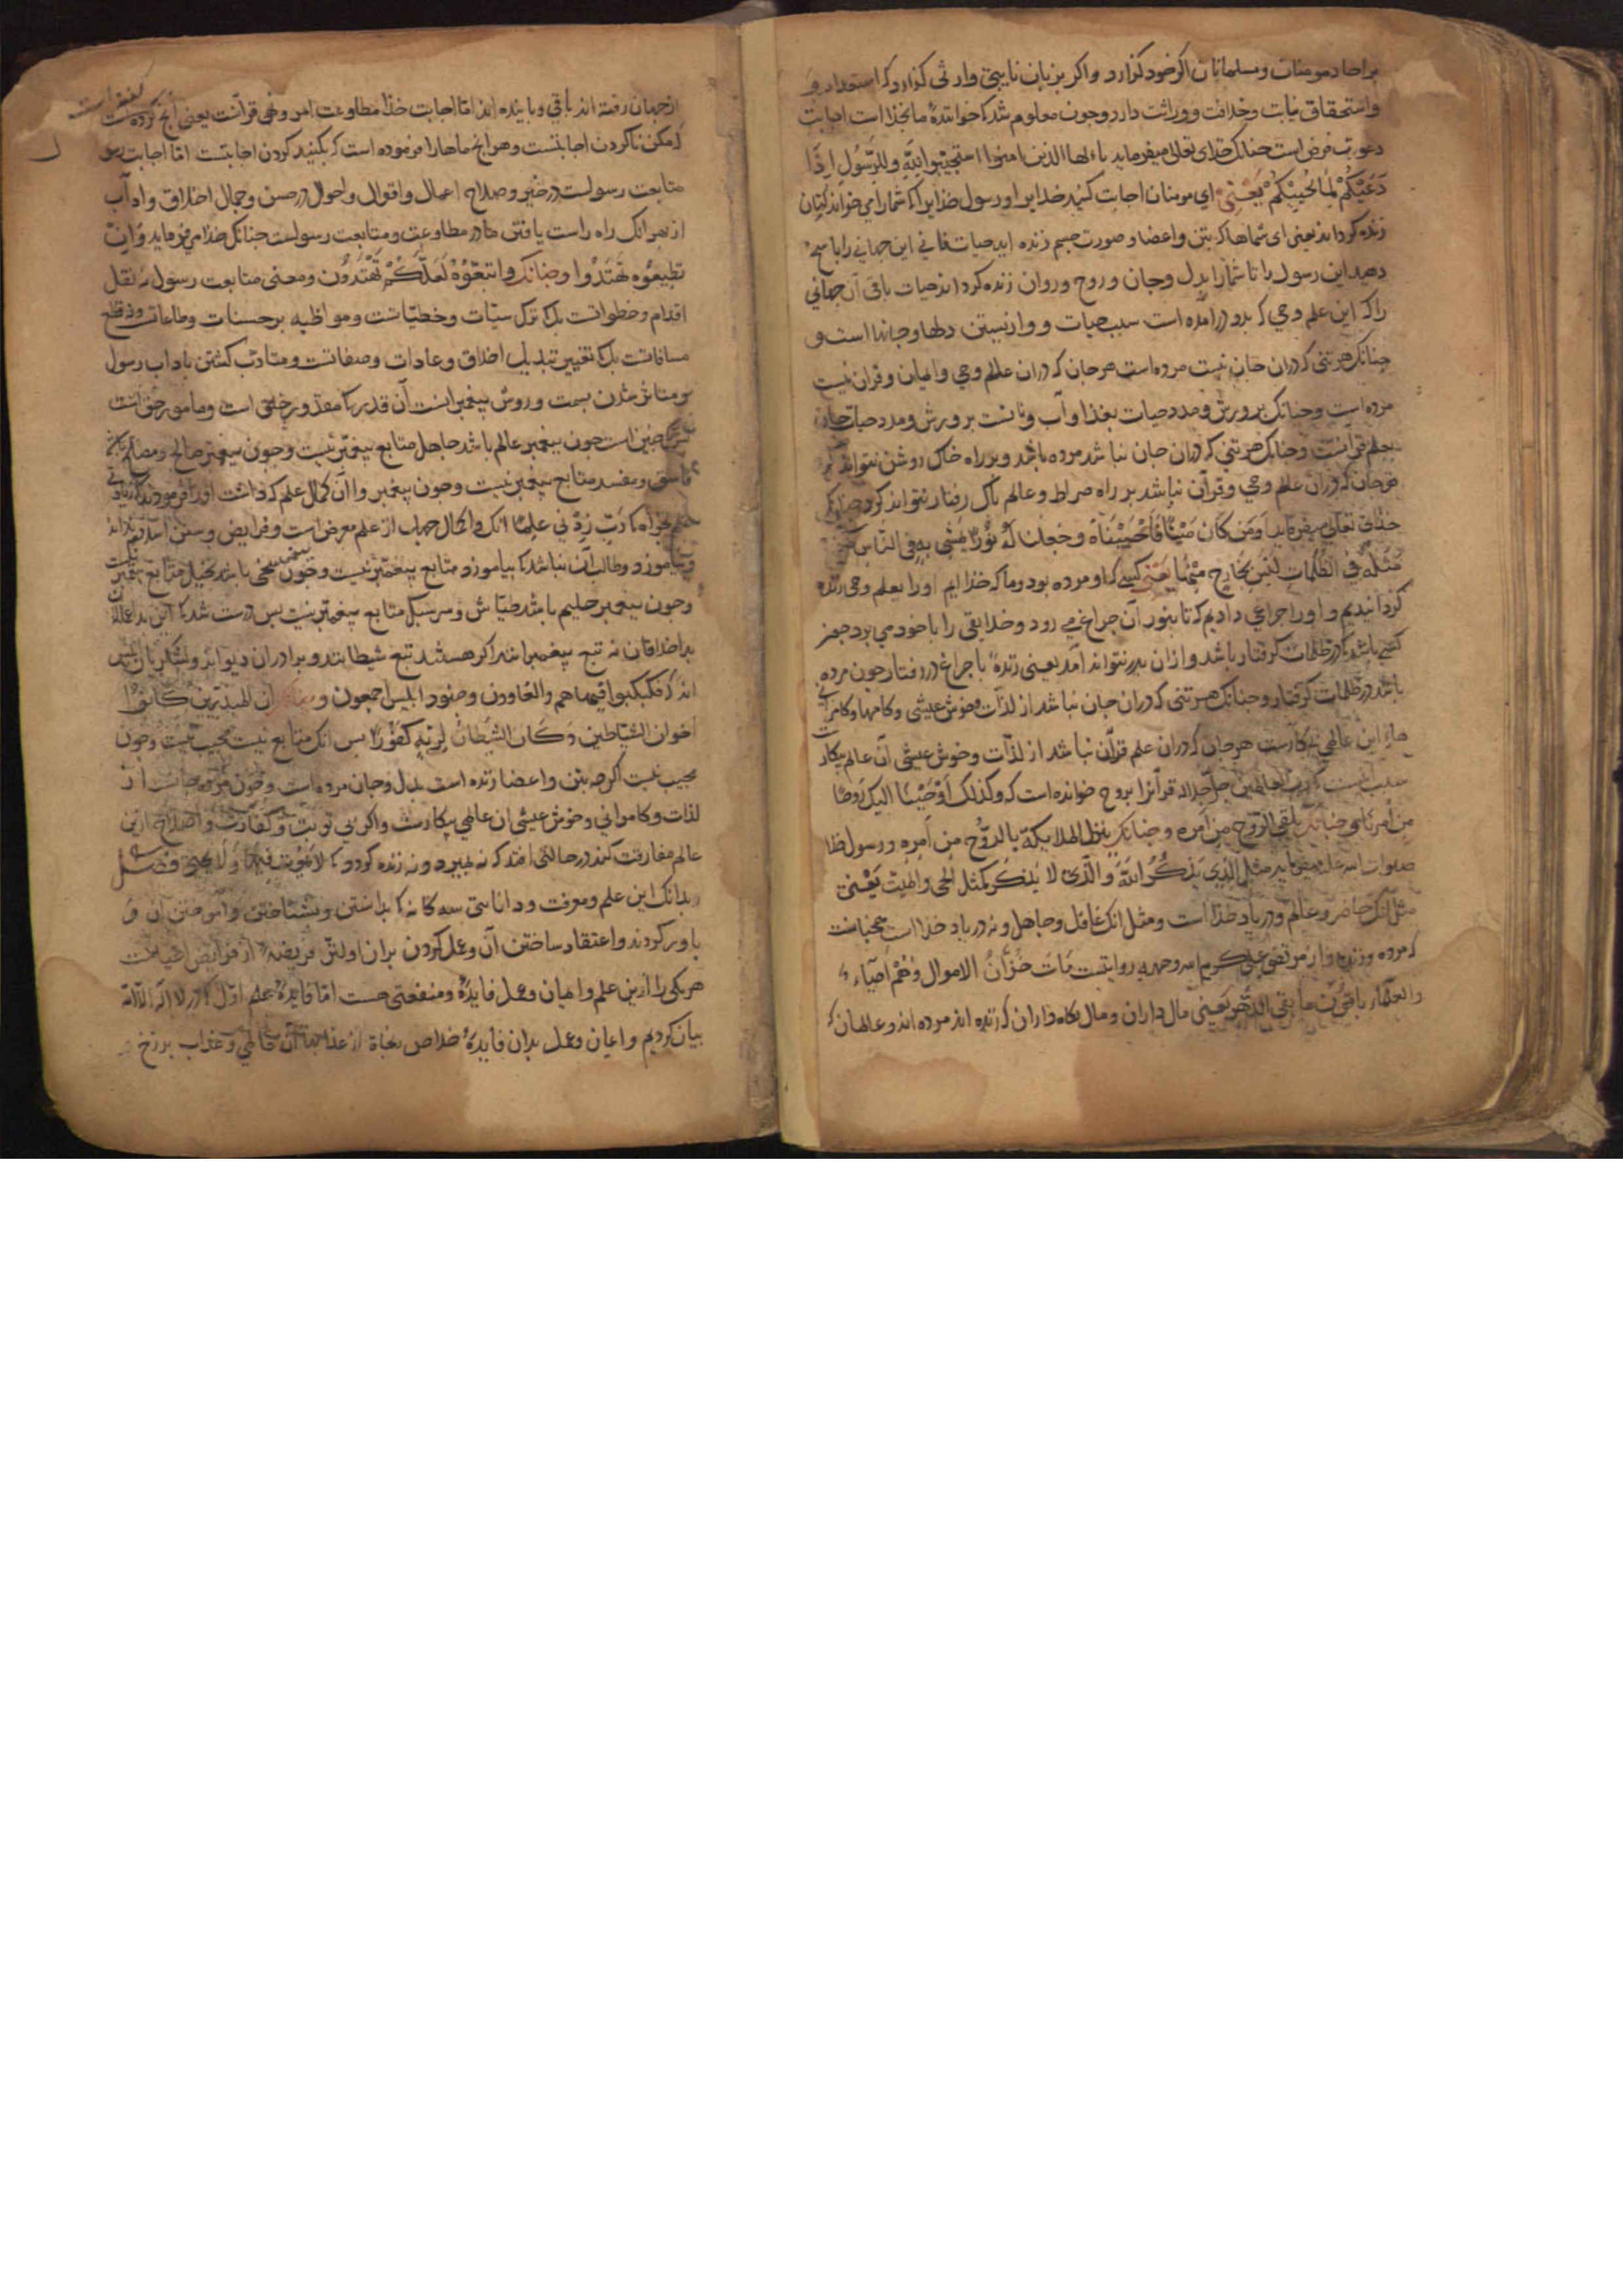 بر احاد مومنات و مسلمانان اكر خود كزارد واكر بزبان نايبى وارثى كزارد كه استعداد و
واستحقاق نيابت وخلافت ووراثت دارد وجون معلوم شد كه خوانندهٔ ما بخذا است اجابت
دعوت فرض است جنانك خداى تعالى ميفرمايد يا ايها الذين امنوا استجيبوا لله وللرسول اذا
دَعَيْكُمْ لِمَا يُحْيِيْكُمْ يَعْنِى اى مومنان اجابت كنيد خدايرا ورسول خذايرا كه شمارا مى خواند
زنده كرداند يعنى اى شماها كه بتن واعضا وصورت جسم زنده ايد حيات فانى اين جهانى را
دهيد اين رسول را تا شمارا بدل وجان و روح وروان زنده كرداند حيات باقى آن جهانى
را كه اين علم وحى كه بدو درامده است سبب حيات و دلها وجانها است و
جنانك هر تنى كه دران جان نيست مرده است هر جان كه دران علم وحى وايمان وقران نيست
مرده است وجنانك برورش ومدد حيات بغذا وآب ونانست برورش ومدد حيات جان
بعلم قرآنست وجنانك هر تنى كه دران جان نباشد مرده باشد وبر راه خاك روشن نتواند
هر جان كه دران علم وحى وقرآن نباشد بر راه صراط وعالم باك رفتار نتواند كرد جنانك
خذاى تعالى ميفرمايد اَوَمَن كَانَ مَيْتًا فَاَحْيَيْنَاهُ وَجَعَلنا لَهُ نُوْرًا يَمْشِى بِهِ فِى النَّاسِ كمن
مَثَلُهُ فِى الظُّلُمَاتِ لَيْسَ بِخَارِجٍ مِنْهَا يَعْنِى كسى كه او مرده بود وما كه خذاايم اورا بعلم وحى زنده
كردانيديم واورا جراغى داديم كه تا بنور آن جراغ مى رود وخلايق را با خود مى برد
كسى باشد كه در ظلمات كرفتار باشد وازان بدر نتواند آمد يعنى زندهٔ با جراغ در رفتار جون مرده
باشد در ظلمات كرفتار وجنانك هر تنى كه دران جان نباشد از لذّات وخوش عيشى وكامها وكامرانى
هاى اين عالمى بيكارست هر جان كه دران علم قرآن نباشد از لذّات وخوش عيشى آن عالم بيكار
العالمين جل جلاله قرآنرا بروح خوانده است كه وكذلك اَوْحَيْنَا اليك رُوحًا
مِن اَمرِنا وجنانك يُلقِى الرّوحَ مِن اَمره وجنانك ينزل الملايكة بالرّوْحِ مِن اَمرِهِ ورسول خدا
صلوات الله عليه مثل الذى يذكُرُ اللهَ وَالّذى لا يذكُر كمثل الحى والميت يَعْنى
مثل آنك حاضر وعالم ودر ياد خذا است ومثل انك غافل وجاهل ونه در ياد خذا است همجنانست
كه مرده وزنده واز مرتضى على كرم الله وجهه روايتست مَاتَ خُزّانُ الاموال وَهُمْ اَحيَاء
والعلماء باقُون ما بقى الدهر يعنى مال داران ومال نكاه داران كه زنده اند مرده اند وعالمان كه
از جهان رفته اند باقى وباينده اند امّا اجابت خذا مطاوعت امر ونهى قرآنست يعنى آنج
كه مكن ناكردن اجابتست وهر انج ماهارا فرموده است كه بكنيد كردن اجابتست امّا اجابت رسول
متابعت رسولست در خير وصلاح اعمال واقوال واحوال در حسن وجمال اخلاق وآداب
از بهر آنك راه راست يافتن ما در مطاوعت ومتابعت رسولست جنانك خذا مى فرمايد وَاِنْ
تطيعوُه تَهْتَدُوا وجنانك واتبعُوُهُ لَعَلَّكُمْ تَهْتَدُوْن ومعنى متابعت رسول نه نقل
اقدام وخطواتست بل كه ترك سيّات وخطيّاتست ومواظبه بر حسنات وطاعات ونه قطع
مسافاتست بل كه تغيير تبديل اخلاق وعادات وصفاتست ومتادّب كشتن باداب رسول
ومتاثر شدن بسمت وروش بيغمبرانست آن قدر كه مقدور خلق است ومامور حق است
جنين است جون بيغمبر عالم باشد جاهل متابع بيغمبر نيست وجون بيغمبر صالح ومصلح باشد
فاسق ومفسد متابع بيغمبر نيست وجون بيغمبر را آن كمال علم كه داشت اورا فرمودند كه زيادتى
علم بخواه كه رَبِّ زِدْنى عِلمًا انك از علم معرض است وفرايض وسنن
ونياموزد وطالب آن نباشد كه بياموزد متابع بيغمبر نيست وجون بيغمبر سخى باشد بخيل متابع بيغمبر
وجون بيغمبر حليم باشد طيّاش وسرسبك متابع بيغمبر نيست بس درست شد كه اين بد اعمالان
بد اخلاقان نه تبع بيغمبرانند اكر هستند تبع شيطانند وبرادران ديوانند ولشكريان ابليس
اند كه فكبكبوا فيها هم والغاوون وجنود ابليس اجمعون و ان المبذرين كَانُوا
اخوان الشياطين وَكَان الشيْطانُ لِرَبّهِ كَفُوْرًا بس انك متابع نيست مجيب نيست وجون
مجيب نيست اكرجه بتن واعضا زنده است بدل وجان مرده است وجون مرده جانست از
لذات وكامرانى وخوش عيشى آن عالمى بيكارست واكر بى توبت وكفارت واصلاح ازين
عالم مفارقت كند در حالتى افتد كه نه بميرد ونه زنده كردد كه لا يَمُوت فيها وَلَا يحيى فصل
بدانك اين علم ومعرفت ودانايى سه كانه كه بدانستن وبشناختن وآموختن آن و
باور كردند واعتقاد ساختن آن وعمل كردن بران اولين فريضهٔ از فرايض اعيانست
هر يكى را ازين علم وايمان وعمل فايدهٔ ومنفعتى هست امّا فايدهٔ علم اوّل كه در لا اله الا الله
بيان كرديم وايمان وعمل بدان فايدهٔ خلاص نجاة از عذابهاى آن عالمى وعذاب برزخ